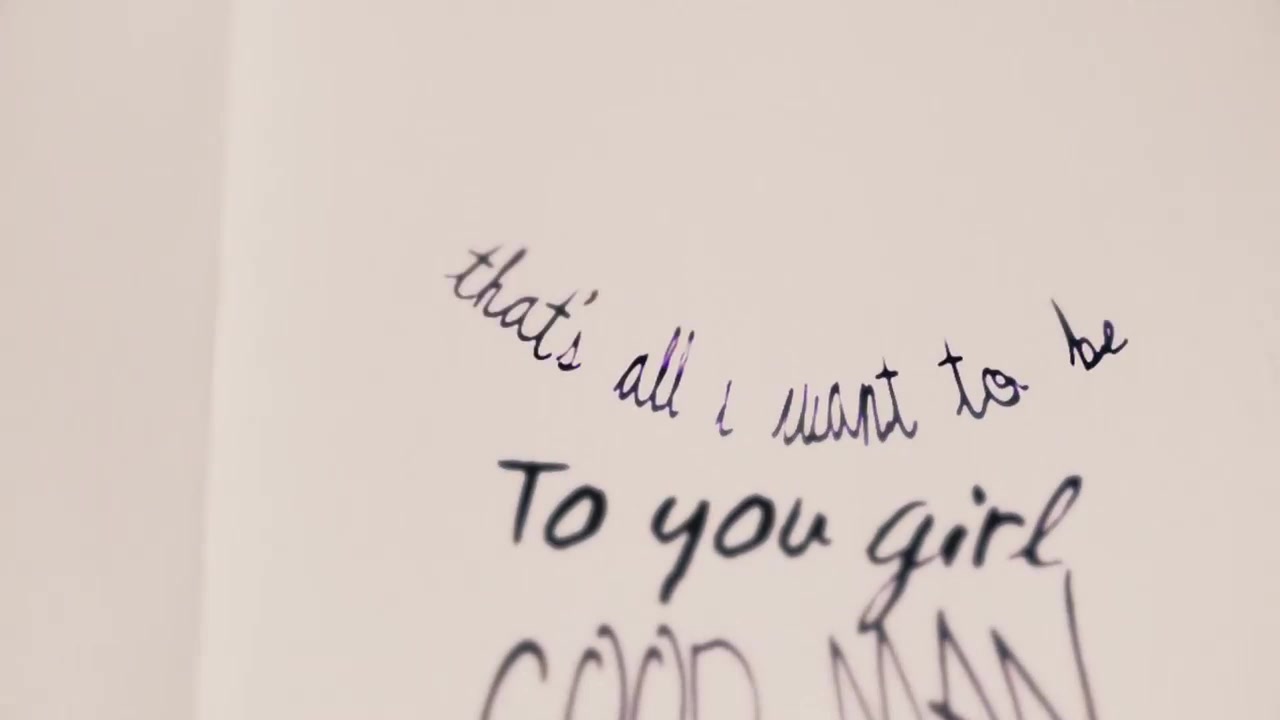 that's all i want to be
To you girl
GOOD MAN